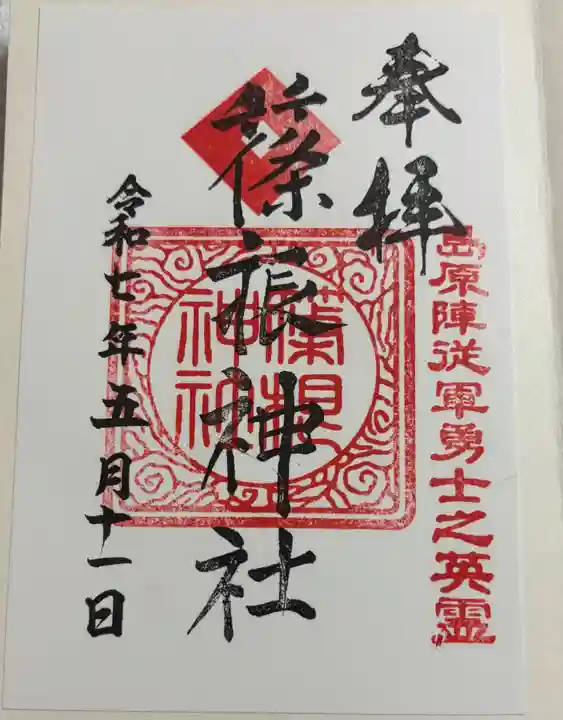 奉拝
島原陣従軍勇士之英霊
篠
神社
令和七年五月十一日
神社